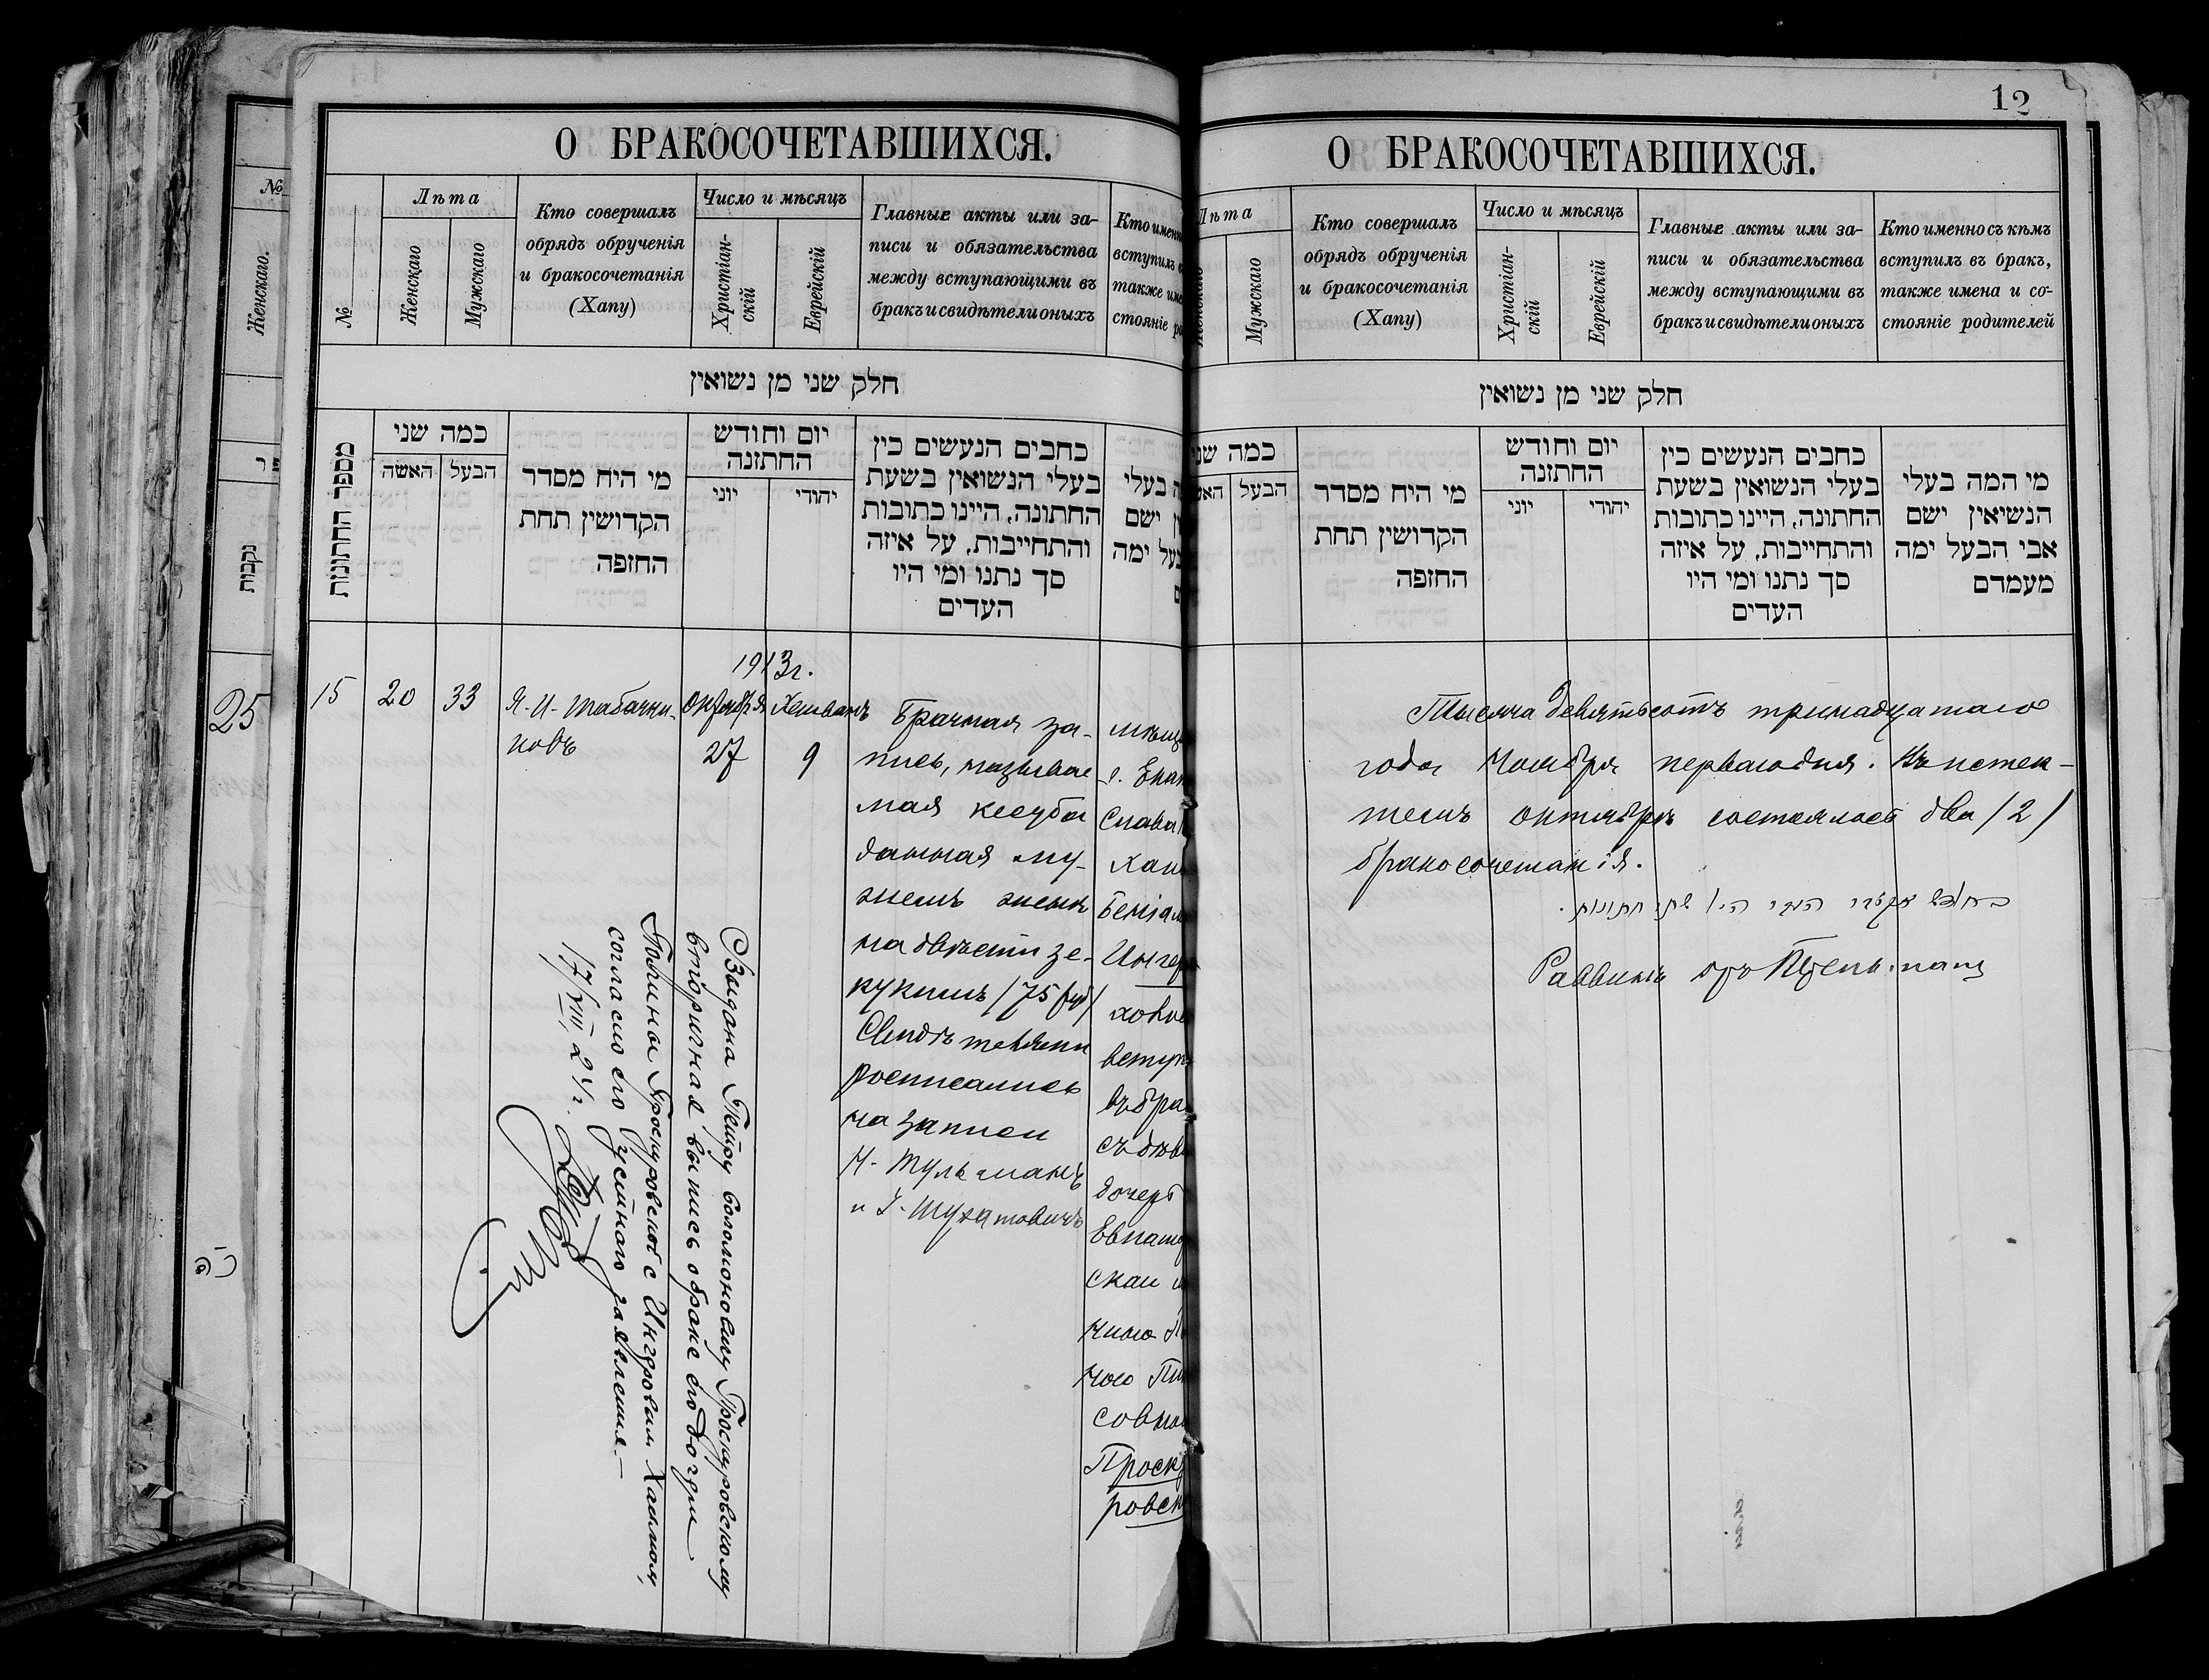 №
Женскаго.
נקבות
25
О БРАКОСОЧЕТАВШИХСЯ.
№
Лѣта
Женскаго
Мужскаго
Кто совершалъ
обрядъ обрученія
и бракосочетанія
(Хапу)
Число и мѣсяцъ
Христіан-
скій
Еврейскій
Главные акты или за-
писи и обязательства
между вступающими въ
бракъ и свидѣтели оныхъ
חלק שני מן נשואין
מספר החתונות
כמה שני
האשה
הבעל
מי היח מסדר
הקדושין תחת
החופה
יום וחודש
החתונה
יוני
יהודי
כתבים הנעשים בין
בעלי הנשואין בשעת
החתונה, היינו כתובות
והתחייבות, על איזה
סך נתנו ומי היו
העדים
15
20
33
Я. И. Табачни-
ковъ
1913 г.
Октября
27
Хешванъ
9
Брачная за-
пись, называе
мая кесуба
данная му-
жемъ женѣ
на двѣсти зе-
кукимъ /75 руб/
Свидѣтелями
росписались
на записи
И. Тульманъ
и
Екат
Слава
Хаи
Бенiам
Ингер
ховно
вступ
въ бра
съ дѣв
дочерь
Евпато
скаи
ного
совно
Проску
ровск
Выдана Петру Соломоновичу Проскуровскому
вторичная выпись о браке его дочери
Полины Проскуровской с Ингеровым Хаимом,
согласно его устного заявления. —
17/VIII 24 г.
12
О БРАКОСОЧЕТАВШИХСЯ.
Лѣта
Мужскаго
Кто совершалъ
обрядъ обрученія
и бракосочетанія
(Хапу)
Число и мѣсяцъ
Христіан-
скій
Еврейскій
Главные акты или за-
писи и обязательства
между вступающими въ
бракъ и свидѣтели оныхъ
Кто именно съ кѣмъ
вступилъ въ бракъ,
также имена и со-
стояніе родителей
חלק שני מן נשואין
כמה שני
הבעל
מי היח מסדר
הקדושין תחת
החופה
יום וחודש
החתונה
יוני
יהודי
כתבים הנעשים בין
בעלי הנשואין בשעת
החתונה, היינו כתובות
והתחייבות, על איזה
סך נתנו ומי היו
העדים
מי המה בעלי
הנשיאין ישם
אבי הבעל ימה
מעמדם
Тысяча девятьсотъ тринадцатаго
года Ноября перваго дня. Въ истек-
шемъ октябрѣ состоялось два /2/
бракосочетанія.
Раввинъ